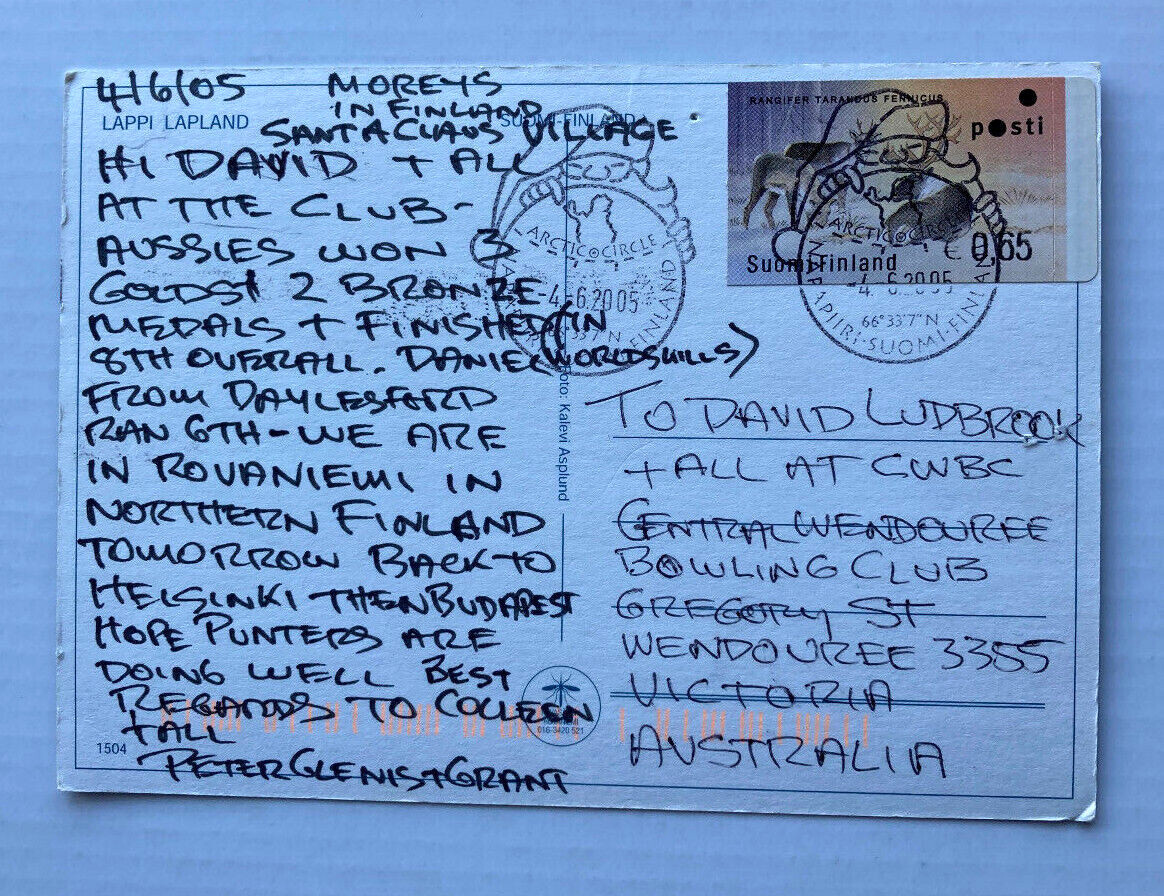 4/6/05 MOREYS
IN FINLAND
LAPPI LAPLAND SUOMI-FINLAND
SANTA CLAUS VILLAGE
HI DAVID + ALL
AT THE CLUB-
AUSSIES WON 3
GOLDS + 2 BRONZE
MEDALS + FINISHED (IN
8TH OVERALL. DANIEL WORLDSKILLS)
FROM DAYLESFORD
RAN 6TH - WE ARE
IN ROVANIEMI IN
NORTHERN FINLAND
TOMORROW BACK TO
HELSINKI THEN BUDAPEST
HOPE PUNTERS ARE
DOING WELL BEST
REGARDS TO COLLEEN
+ ALL
PETER GLENIS + GRANT
1504
Foto: Kalevi Asplund
016-3420 521
RANGIFER TARANDUS FENNICUS
posti
Suomi Finland
€ 0,65
ARCTIC CIRCLE
-4.6.2005
FINLAND
ARCTIC CIRCLE
-4.6.2005
66°33'7"N
NAPAPIIRI-SUOMI-FINLAND
TO DAVID LUDBROOK
+ ALL AT CWBC
CENTRAL WENDOUREE
BOWLING CLUB
GREGORY ST
WENDOUREE 3355
VICTORIA
AUSTRALIA